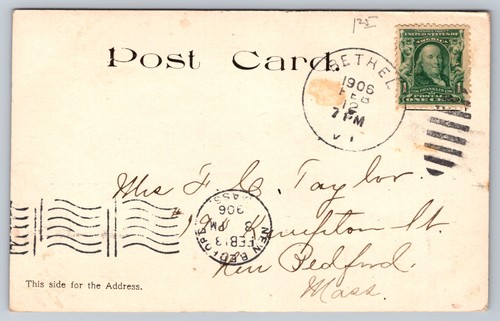 125
UNITED STATES OF AMERICA
Post Card.
BETHEL
1906
FEB
12
7 PM
VT
1
POSTAGE
ONE CENT
Mrs F. C. Taylor.
St.
New Bedford.
Mass.
NEW BEDFORD
MASS.
FEB 13
PM
1906
This side for the Address.